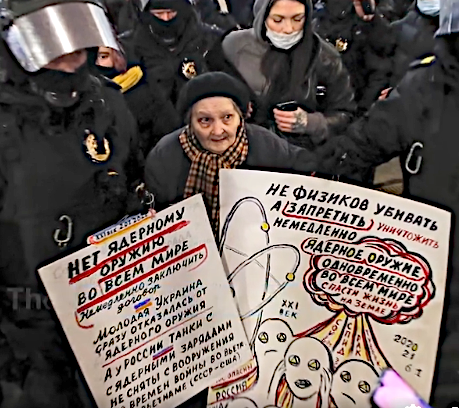 НЕТ ЯДЕРНОМУ
ОРУЖИЮ
ВО ВСЕМ МИРЕ
Немедленно заключить
договор
МОЛОДАЯ УКРАИНА
СРАЗУ ОТКАЗАЛАСЬ ОТ
ЯДЕРНОГО ОРУЖИЯ
А У РОССИИ ТАНКИ С
ЯДЕРНЫМИ ЗАРЯДАМИ
НЕ СНЯТЫ С ВООРУЖЕНИЯ
ВРЕМЕН ВОЙНЫ ВО ВЬЕТ
НАМЕ (СССР-США)
НЕ ФИЗИКОВ УБИВАТЬ
А ЗАПРЕТИТЬ УНИЧТОЖИТЬ
НЕМЕДЛЕННО
ЯДЕРНОЕ ОРУЖИЕ
ОДНОВРЕМЕННО
ВО ВСЕМ МИРЕ
СПАСТИ ЖИЗНЬ
НА ЗЕМЛЕ
XXI
ВЕК
2020
21
РОССИЯ